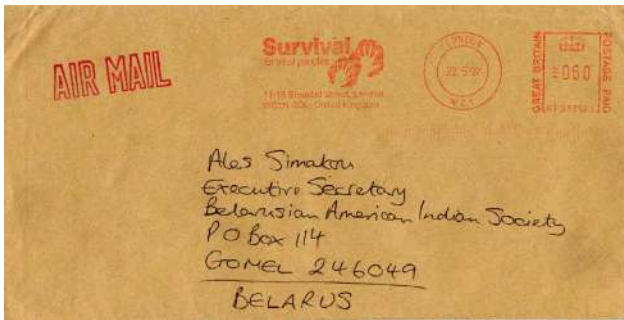 AIR MAIL
Survival
for tribal peoples
11-15 Emerald Street, London
United Kingdom
LONDON
22.5.97
W.C.1
GREAT BRITAIN
060
POSTAGE PAID
Ales Simakou
Executive Secretary
Belarusian American Indian Society
P O Box 114
GOMEL 246049
BELARUS